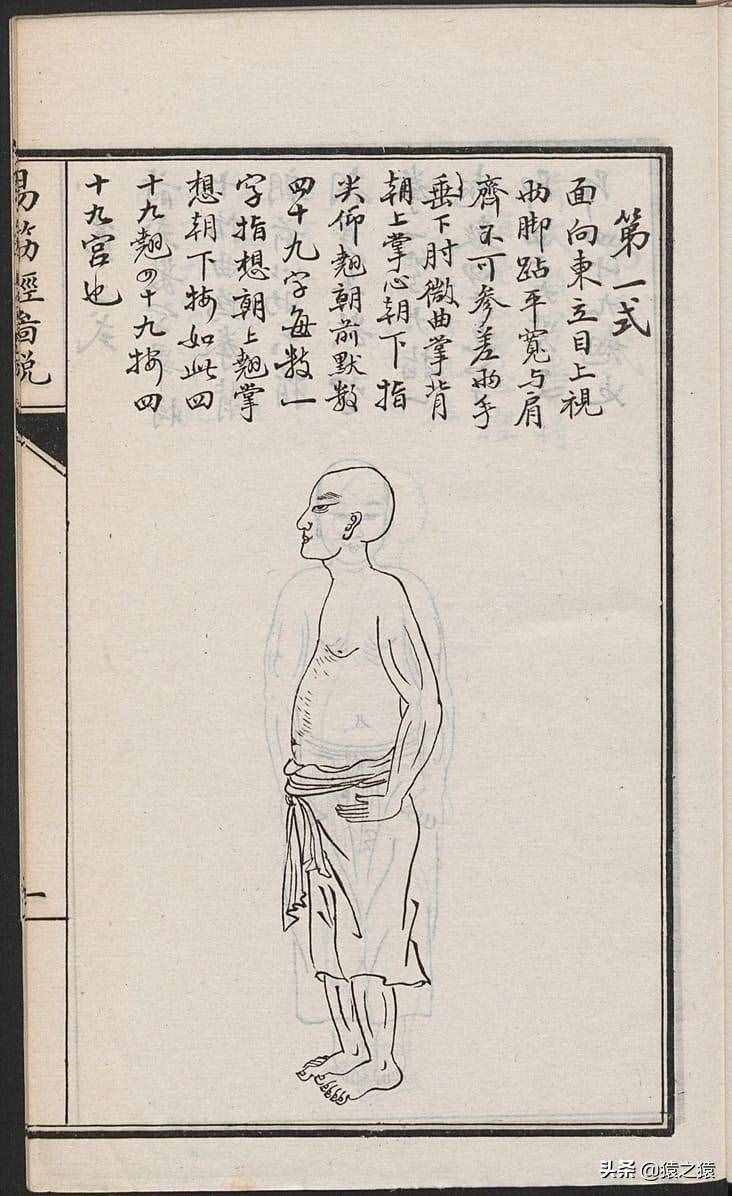 第一式
面向東立目上視
兩脚跕平寬与肩
齊不可參差兩手
垂下肘微曲掌背
朝上掌心朝下指
尖仰翹朝前默数
四十九字每数一
字指想朝上翹掌
想朝下按如此四
十九翹四十九按四
十九宫也
易筋經畧説
一
头条 @猿之猿